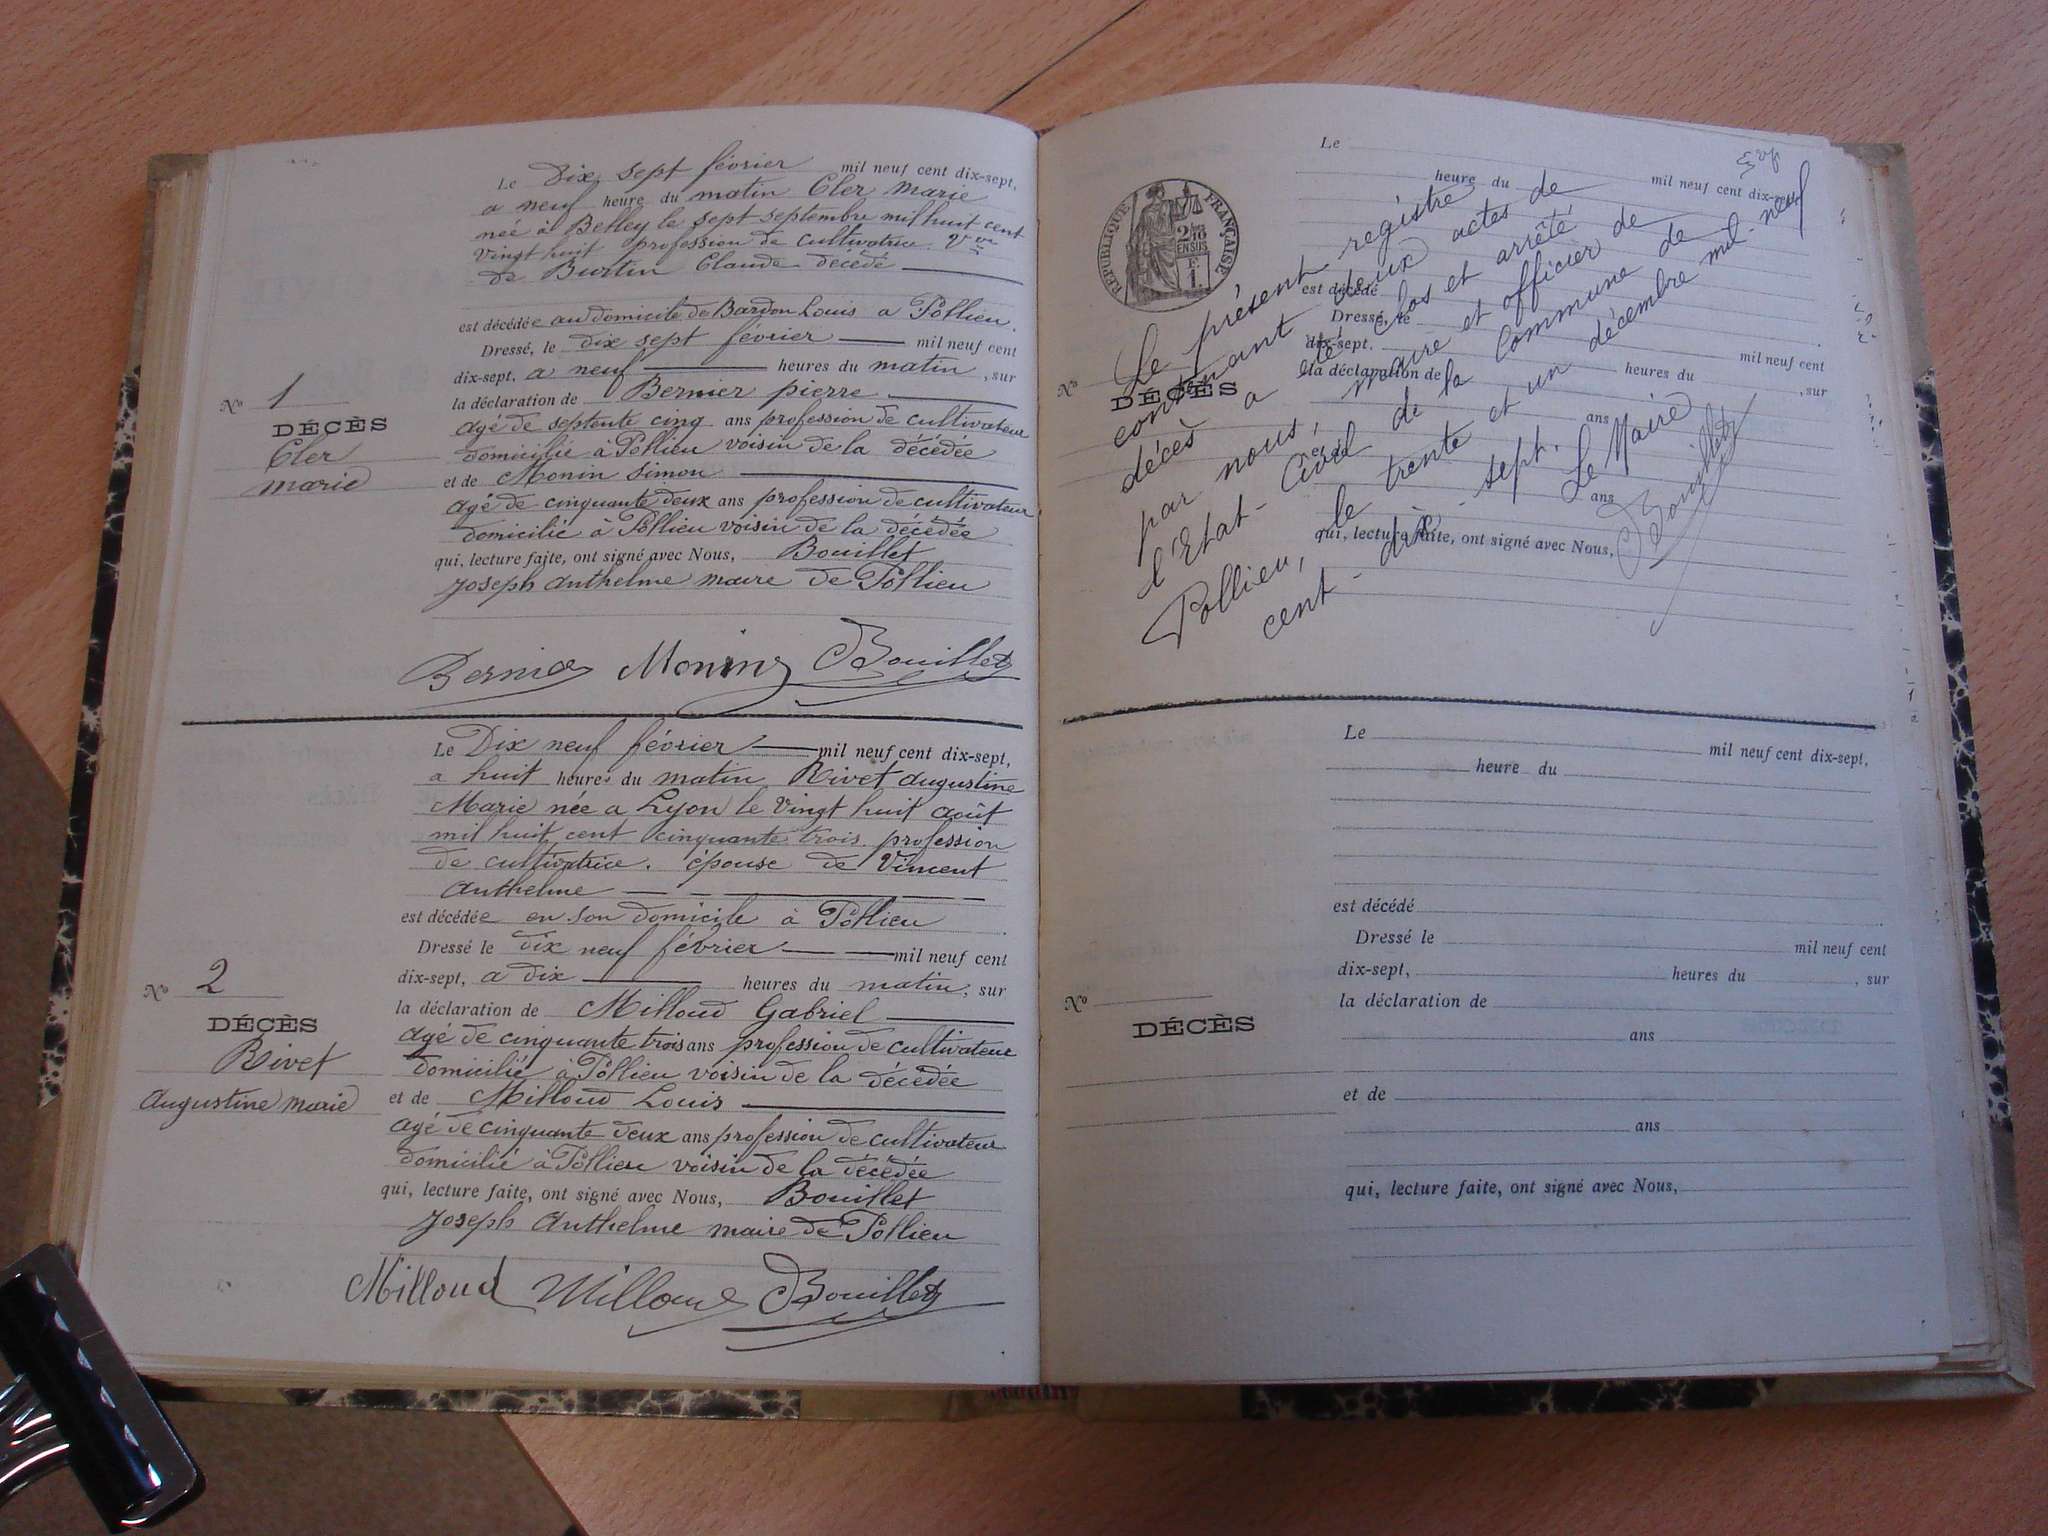 Le Dix sept février mil neuf cent dix-sept,
a neuf heure du matin Cler Marie
née à Belley le sept septembre mil huit cent
vingt huit profession de cultivatrice Vve
de Burtin Claude décédé
est décédée au domicile de Bardon Louis a Pollieu.
Dressé, le dix sept février mil neuf cent
dix-sept, a neuf heures du matin, sur
la déclaration de Bernier pierre
agé de septente cinq ans profession de cultivateur
domicilié à Pollieu voisin de la décédée
et de Monin Simon
agé de cinquante deux ans profession de cultivateur
domicilié à Pollieu voisin de la décédée
qui, lecture faite, ont signé avec Nous, Bouillet
Joseph Anthelme maire de Pollieu
Bernier Monin Bouillet
No 1
DÉCÈS
Cler
marie
Le Dix neuf février mil neuf cent dix-sept,
a huit heures du matin Rivet Augustine
Marie née a Lyon le vingt huit août
mil huit cent cinquante trois profession
de cultivatrice. épouse de Vincent
Anthelme
est décédée en son domicile à Pollieu
Dressé le dix neuf février mil neuf cent
dix-sept, a dix heures du matin, sur
la déclaration de Milloud Gabriel
agé de cinquante trois ans profession de cultivateur
domicilié à Pollieu voisin de la décédée
et de Milloud Louis
agé de cinquante deux ans profession de cultivateur
domicilié à Pollieu voisin de la décédée
qui, lecture faite, ont signé avec Nous, Bouillet
Joseph Anthelme maire de Pollieu
Milloud Milloud Bouillet
No 2
DÉCÈS
Rivet
Augustine marie
RÉPUBLIQUE FRANÇAISE
Le
heure du mil neuf cent dix-sept,
est décédé
Dressé, le mil neuf cent
dix-sept, heures du , sur
la déclaration de
ans
et de
ans
qui, lecture faite, ont signé avec Nous,
No
DÉCÈS
Le présent registre
contenant deux actes de
décès a été clos et arrêté
par nous, maire et officier de
l'Etat-Civil de la Commune de
Pollieu, le trente et un décembre mil-neuf
cent-dix-sept.
Le Maire
Bouillet
Le mil neuf cent dix-sept,
heure du
est décédé
Dressé le mil neuf cent
dix-sept, heures du , sur
la déclaration de
ans
et de
ans
qui, lecture faite, ont signé avec Nous,
No
DÉCÈS